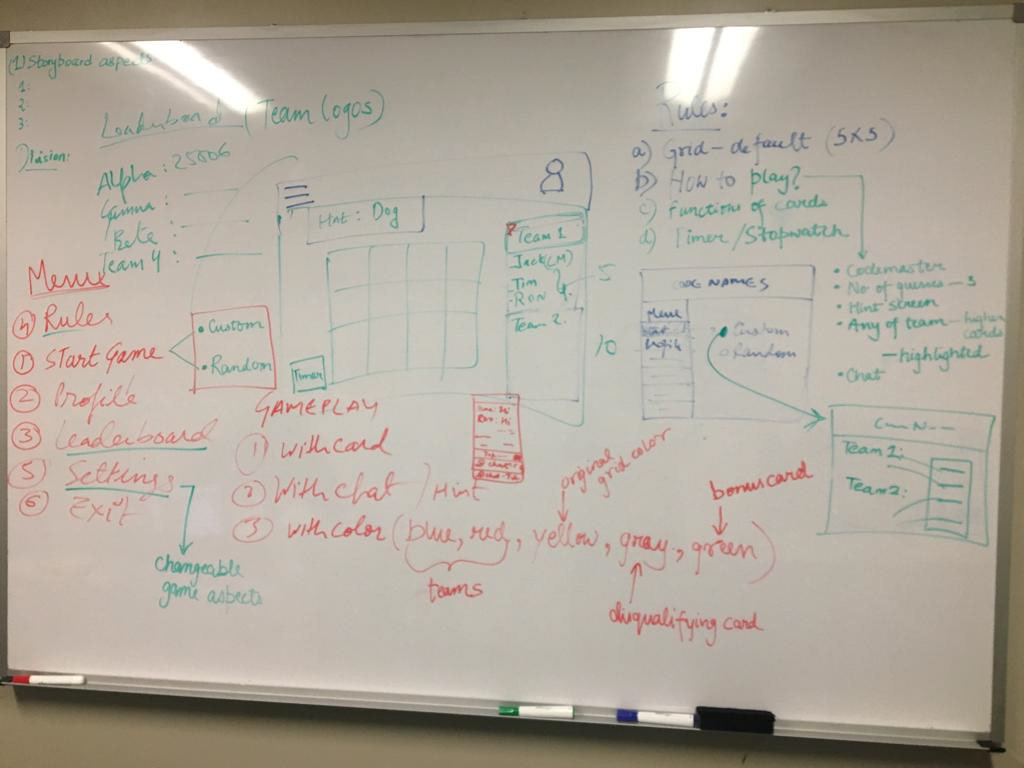 (1) Storyboard aspects
1:
2:
3:
Leaderboard (Team Logos)
Division:
Alpha : 25806
Gamma :
Beta :
Team 4 :
Menu
④ Rules
① Start Game
② Profile
③ Leaderboard
⑤ Settings
⑥ Exit
• Custom
• Random
changeable
game aspects
Hint : Dog
Timer
Team 1
Jack (M)
Tim
RON
Team 2.
5
10
GAMEPLAY
① with card
② With chat / Hint
③ with color (blue, red, yellow, gray, green)
teams
original
grid color
bonus card
disqualifying card
Rules:
a) Grid - default (5x5)
b) How to play?
c) Functions of cards
d) Timer/Stopwatch
• Codemaster
• No of guesses - 3
• Hint screen
• Any of team - higher
cards
- highlighted
• Chat
CODE NAMES
Menu
Start
Profile
Custom
Random
Team 1:
Team 2: